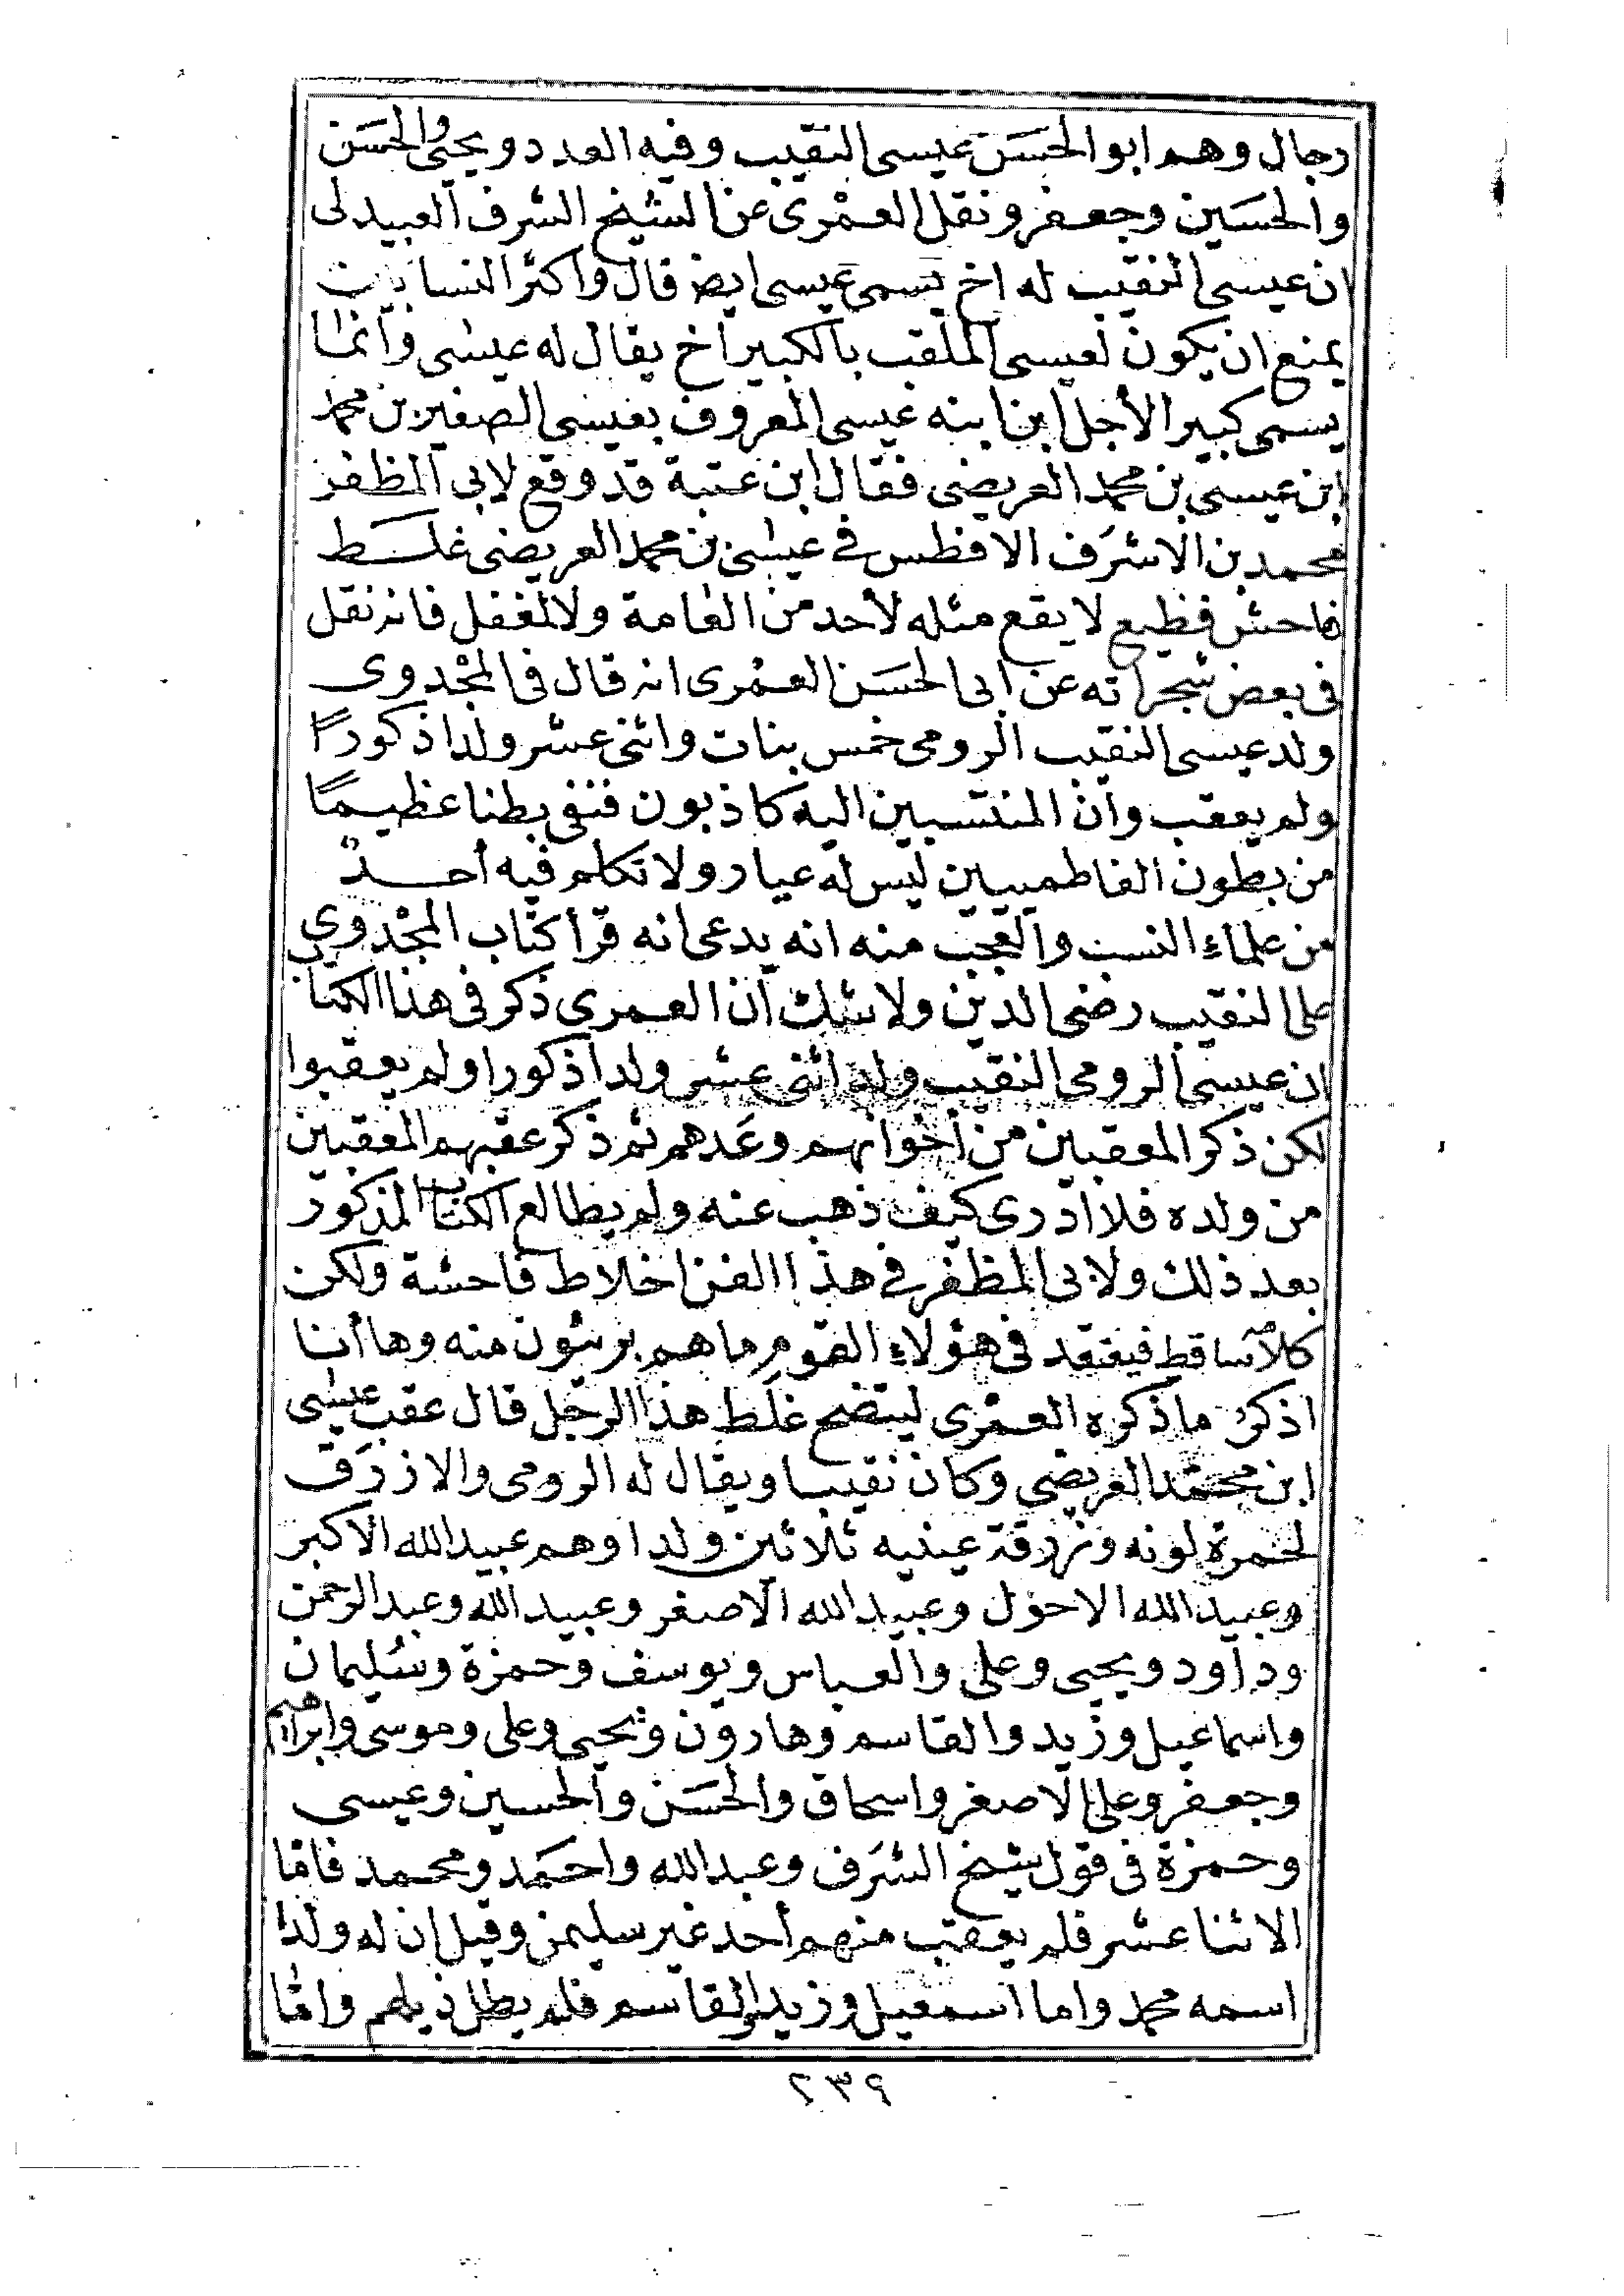 رجال وهم ابوا الحسن عيسى النقيب وفيه العدد ويحيى والحسن
والحسين وجعفر ونقل العمرى عن الشيخ الشرف العبيدلى
ان عيسى النقيب له اخ يسمى عيسى ايض قال واكثر النسابين
يمنع ان يكون لعيسى الملقب بالكبير اخ يقال له عيسى وانما
يسمى كبير الأجل ابن ابنه عيسى المعروف بعيسى الصغير بن محمد
ابن عيسى بن محمد العريضى فقال ابن عتبة قد وقع لابى المظفر
محمد بن الاشرف الافطس فى عيسى بن محمد العريضى غلط
فاحش فظيع لا يقع مثله لأحد من العامة ولالمغفل فانه نقل
فى بعض شجراته عن ابى الحسن العمرى انه قال فى المجدوى
ولد عيسى النقيب الرومى خمس بنات واثنى عشر ولدا ذكورًا
ولم يعقب وان المنتسبين اليه كاذبون فنفى بطنا عظيمًا
من بطون الفاطميين ليس له عيار ولا تكلم فيه أحدٌ
من علماء النسب والعجب منه انه يدعى انه قرأ كتاب المجدوى
على النقيب رضى الدين ولا شك ان العمرى ذكر فى هذا الكتاب
ان عيسى الرومى النقيب ولد اثنى عشر ولدا ذكورا ولم يعقبوا
لكن ذكر المعقبين من اخوانهم وعدهم ثم ذكر عقبهم المعقبين
من ولده فلا ادرى كيف ذهب عنه ولم يطالع الكتاب المذكور
بعد ذلك ولابى المظفر فى هذا الفن اخلاط فاحشة ولكن
كلامه ساقط فيفتقد فى هؤلاء القوم ما هم برئون منه وها أنا
اذكر ما ذكره العمرى ليتضح غلط هذا الرجل قال عقب عيسى
ابن محمد العريضى وكان نقيبا ويقال له الرومى والازرق
لحمرة لونه وزرقة عينيه ثلاثين ولدا وهم عبيدالله الاكبر
وعبيدالله الاحول وعبيدالله الاصغر وعبيدالله وعبدالرحمن
وداود ويحيى وعلى والعباس ويوسف وحمزة وسليمان
واسماعيل وزيد والقاسم وهارون ويحيى وعلى وموسى وابراهيم
وجعفر وعلى الاصغر واسحاق والحسن والحسين وعيسى
وحمزة فى قول شيخ الشرف وعبدالله واحمد ومحمد فاما
الاثنا عشر فلم يعقب منهم أحد غير سليمن وقيل ان له ولدا
اسمه محمد واما اسمعيل وزيد والقاسم فلم يطل ذيلهم واما
٢٣٩